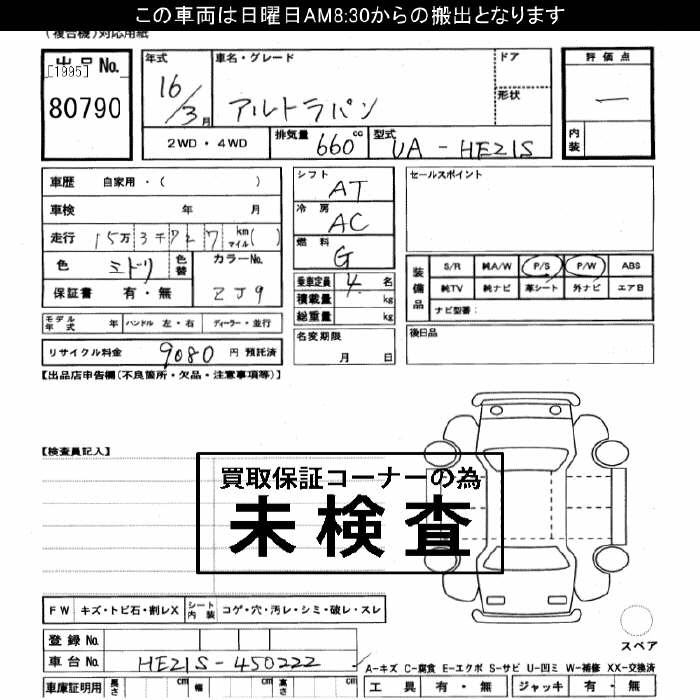 この車両は日曜日AM8:30からの搬出となります
(複合機)対応用紙
出品No.
[1995]
80790
年式
16/3月
車名・グレード
アルトラパン
ドア
形状
評価点
一
内装
2WD・4WD
排気量 660 cc
型式 UA-HE21S
車歴 自家用・( )
車検 年 月
走行 15万3千727 km マイル( )
色 ミドリ
色替
カラーNo.
ZJ9
保証書 有・無
シフト
AT
冷房
AC
燃料
G
乗車定員 4 名
積載量 kg
総重量 kg
セールスポイント
装備品
S/R 純A/W P/S P/W ABS
純TV 純ナビ 革シート 外ナビ エアB
ナビ型番:
モデル年式 年 ハンドル 左・右 ディーラー・並行
名変期限
月 日
後日品
リサイクル料金 9080 円 預託済
【出品店申告欄(不良箇所・欠品・注意事項等)】
【検査員記入】
買取保証コーナーの為
未検査
FW キズ・トビ石・割レX
シート内装 コゲ・穴・汚レ・シミ・破レ・スレ
スペア
登録No.
車台No. HE21S-450222
A-キズ C-腐食 E-エクボ S-サビ U-凹ミ W-補修 XX-交換済
車庫証明用 長さ cm 幅 cm 高さ cm
工具 有・無 ジャッキ 有・無